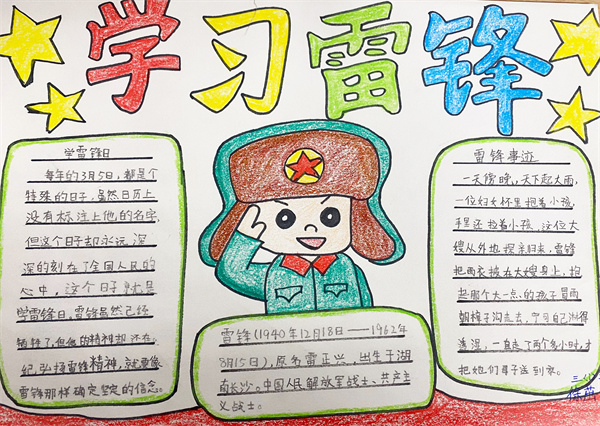 学习雷锋
学雷锋日
每年的3月5日,都是个
特殊的日子,虽然日历上
没有标注上他的名字,
但这个日子却永远,深
深的刻在了全国人民的
心中,这个日子就是
学雷锋日,雷锋虽然已经
牺牲了,但他的精神却还在,
纪弘扬雷锋精神,就要像
雷锋那样确定坚定的信念。
雷锋(1940年12月18日——1962年
8月15日),原名雷正兴,出生于湖
南长沙。中国人民解放军战士、共产主
义战士。
雷锋事迹
一天傍晚,天下起大雨,
一位妇女怀里抱着小孩,
手里还拉着小孩,这位大
嫂从外地探亲归来,雷锋
把雨衣披在大嫂身上,抱
起那个大一点的孩子冒雨
朝樟子沟走去,宁可自己淋得
透湿,一直走了两个多小时,才
把她们母子送到家。